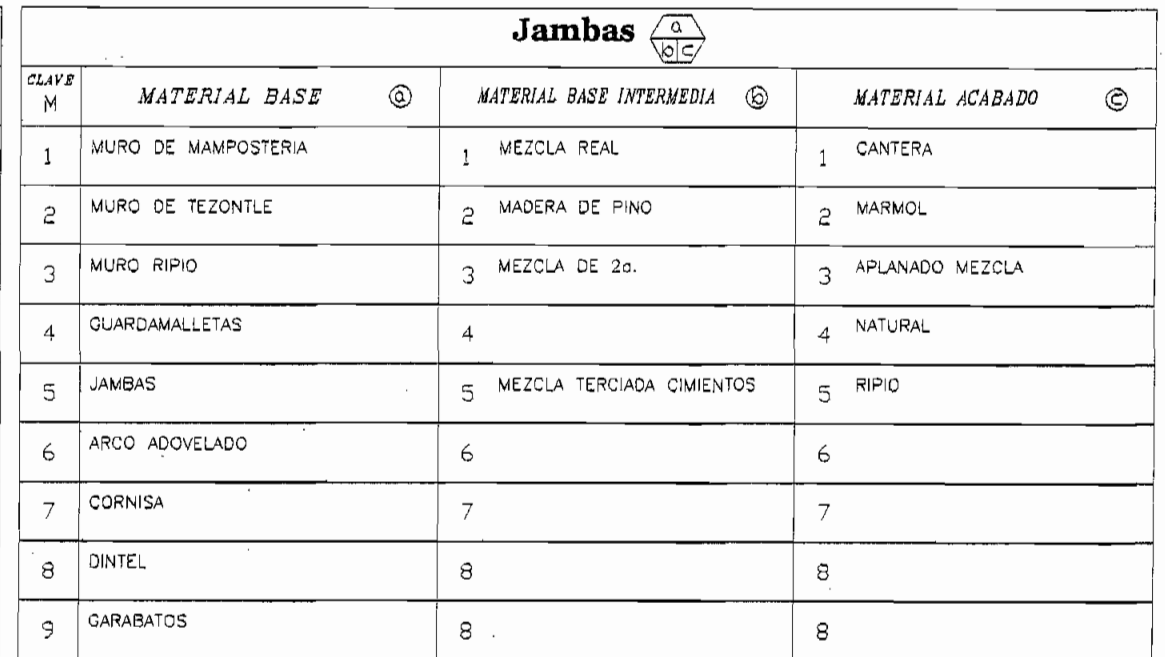 Jambas a b c
CLAVE M MATERIAL BASE ⓐ MATERIAL BASE INTERMEDIA ⓑ MATERIAL ACABADO ⓒ
1 MURO DE MAMPOSTERIA 1 MEZCLA REAL 1 CANTERA
2 MURO DE TEZONTLE 2 MADERA DE PINO 2 MARMOL
3 MURO RIPIO 3 MEZCLA DE 2a. 3 APLANADO MEZCLA
4 GUARDAMALLETAS 4 4 NATURAL
5 JAMBAS 5 MEZCLA TERCIADA CIMIENTOS 5 RIPIO
6 ARCO ADOVELADO 6 6
7 CORNISA 7 7
8 DINTEL 8 8
9 GARABATOS 8 8